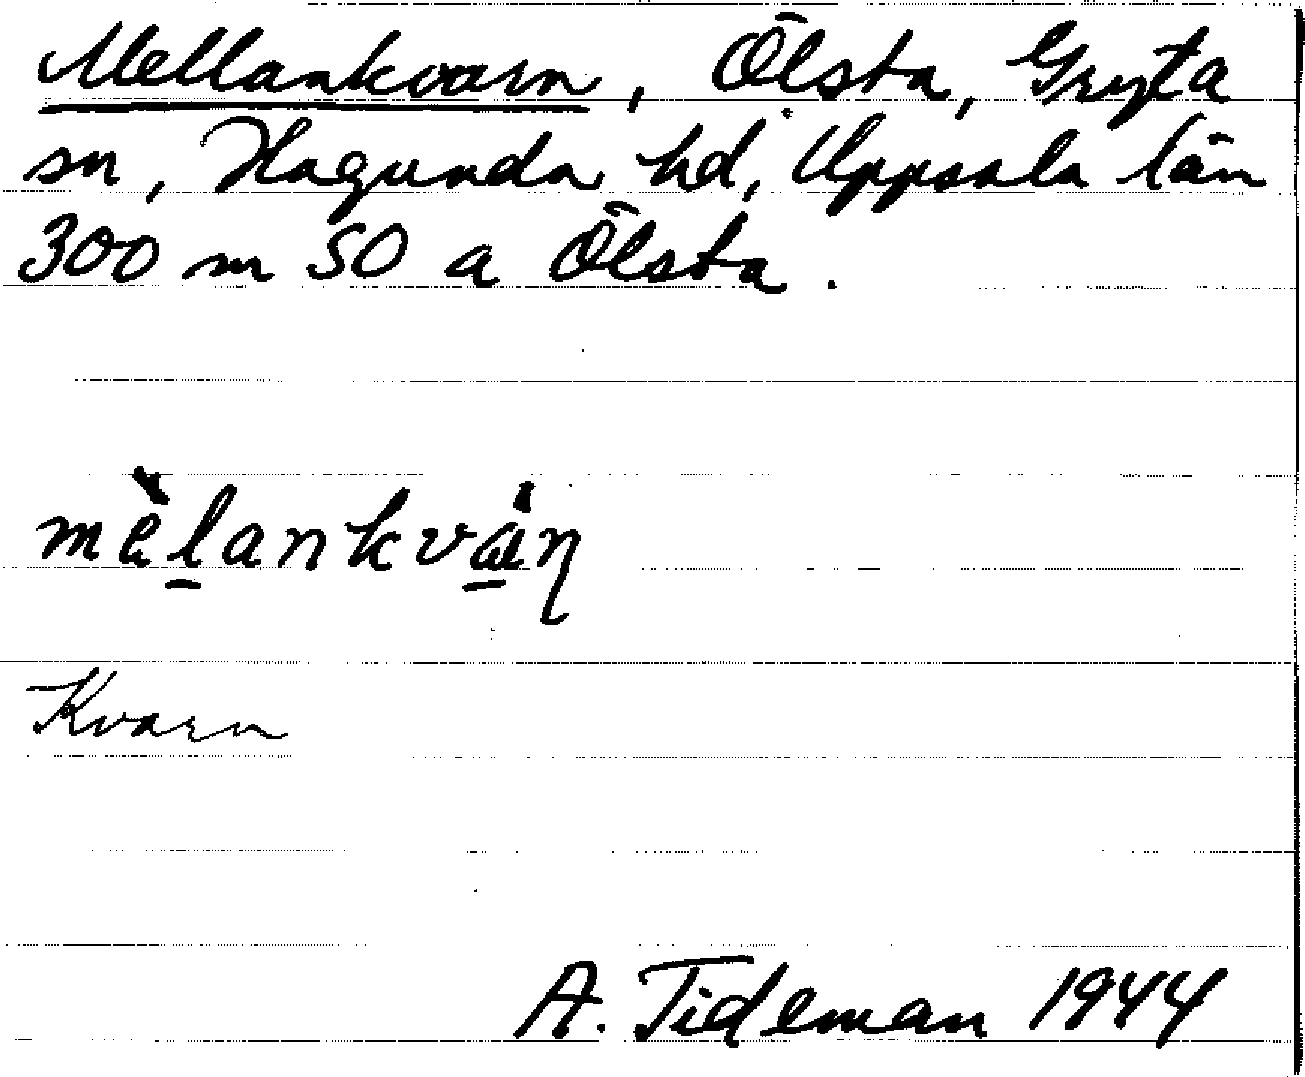 Mellankvarn, Ölsta, Gryta
sn, Hagunda hd, Uppsala län
300 m SO a Ölsta.
mè̱lankvá̱ɳ
Kvarn
A. Tideman 1944